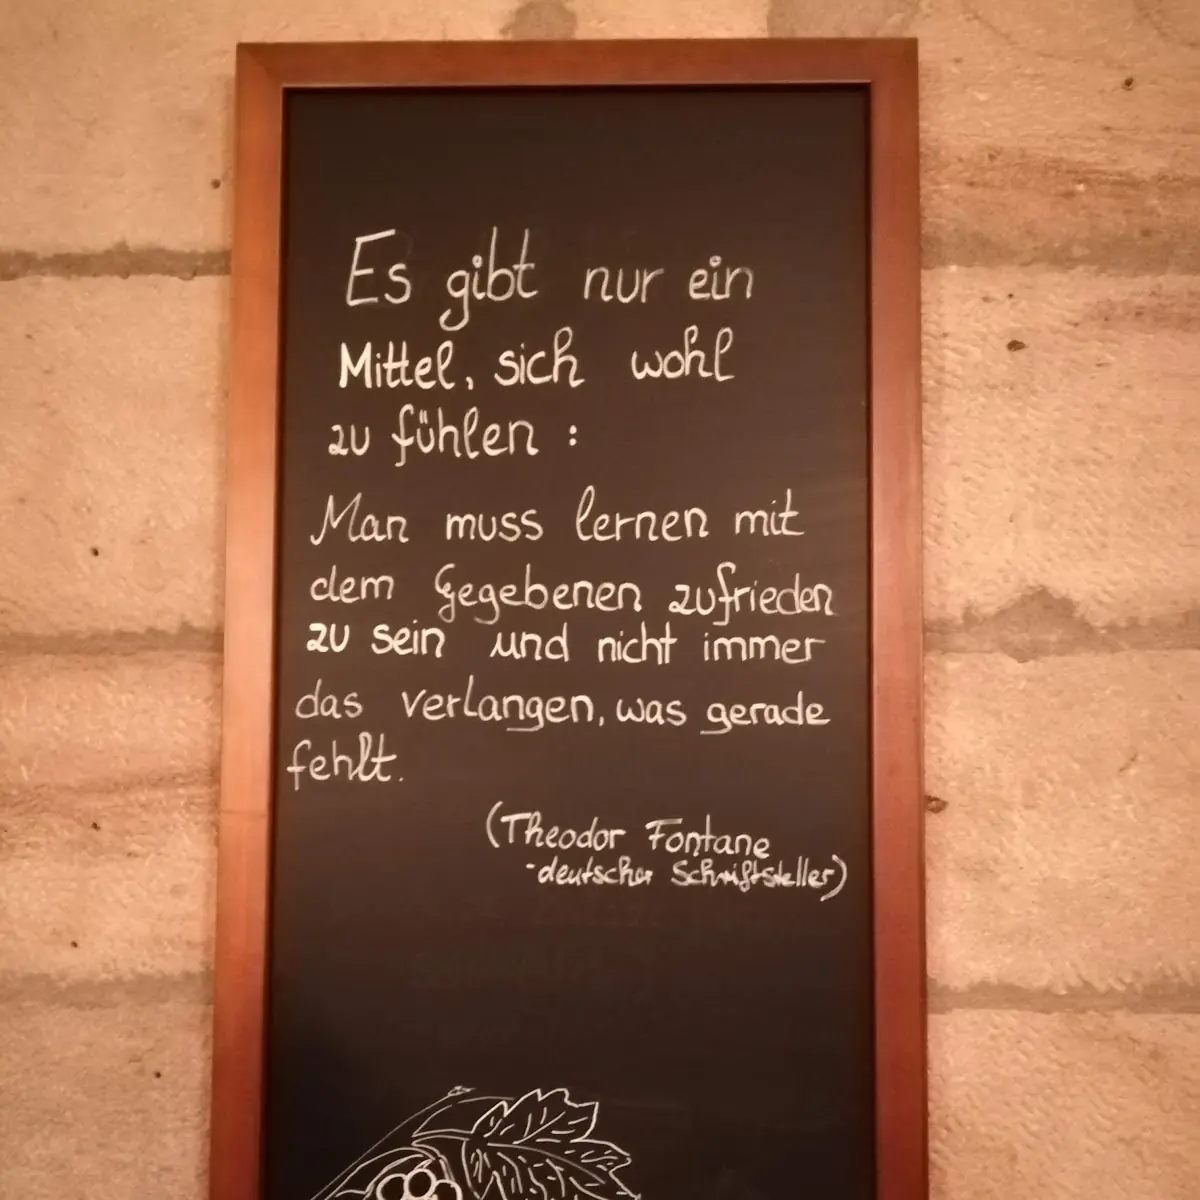 Es gibt nur ein
Mittel, sich wohl
zu fühlen :
Man muss lernen mit
dem Gegebenen zufrieden
zu sein und nicht immer
das verlangen, was gerade
fehlt.
(Theodor Fontane
-deutscher Schriftsteller)